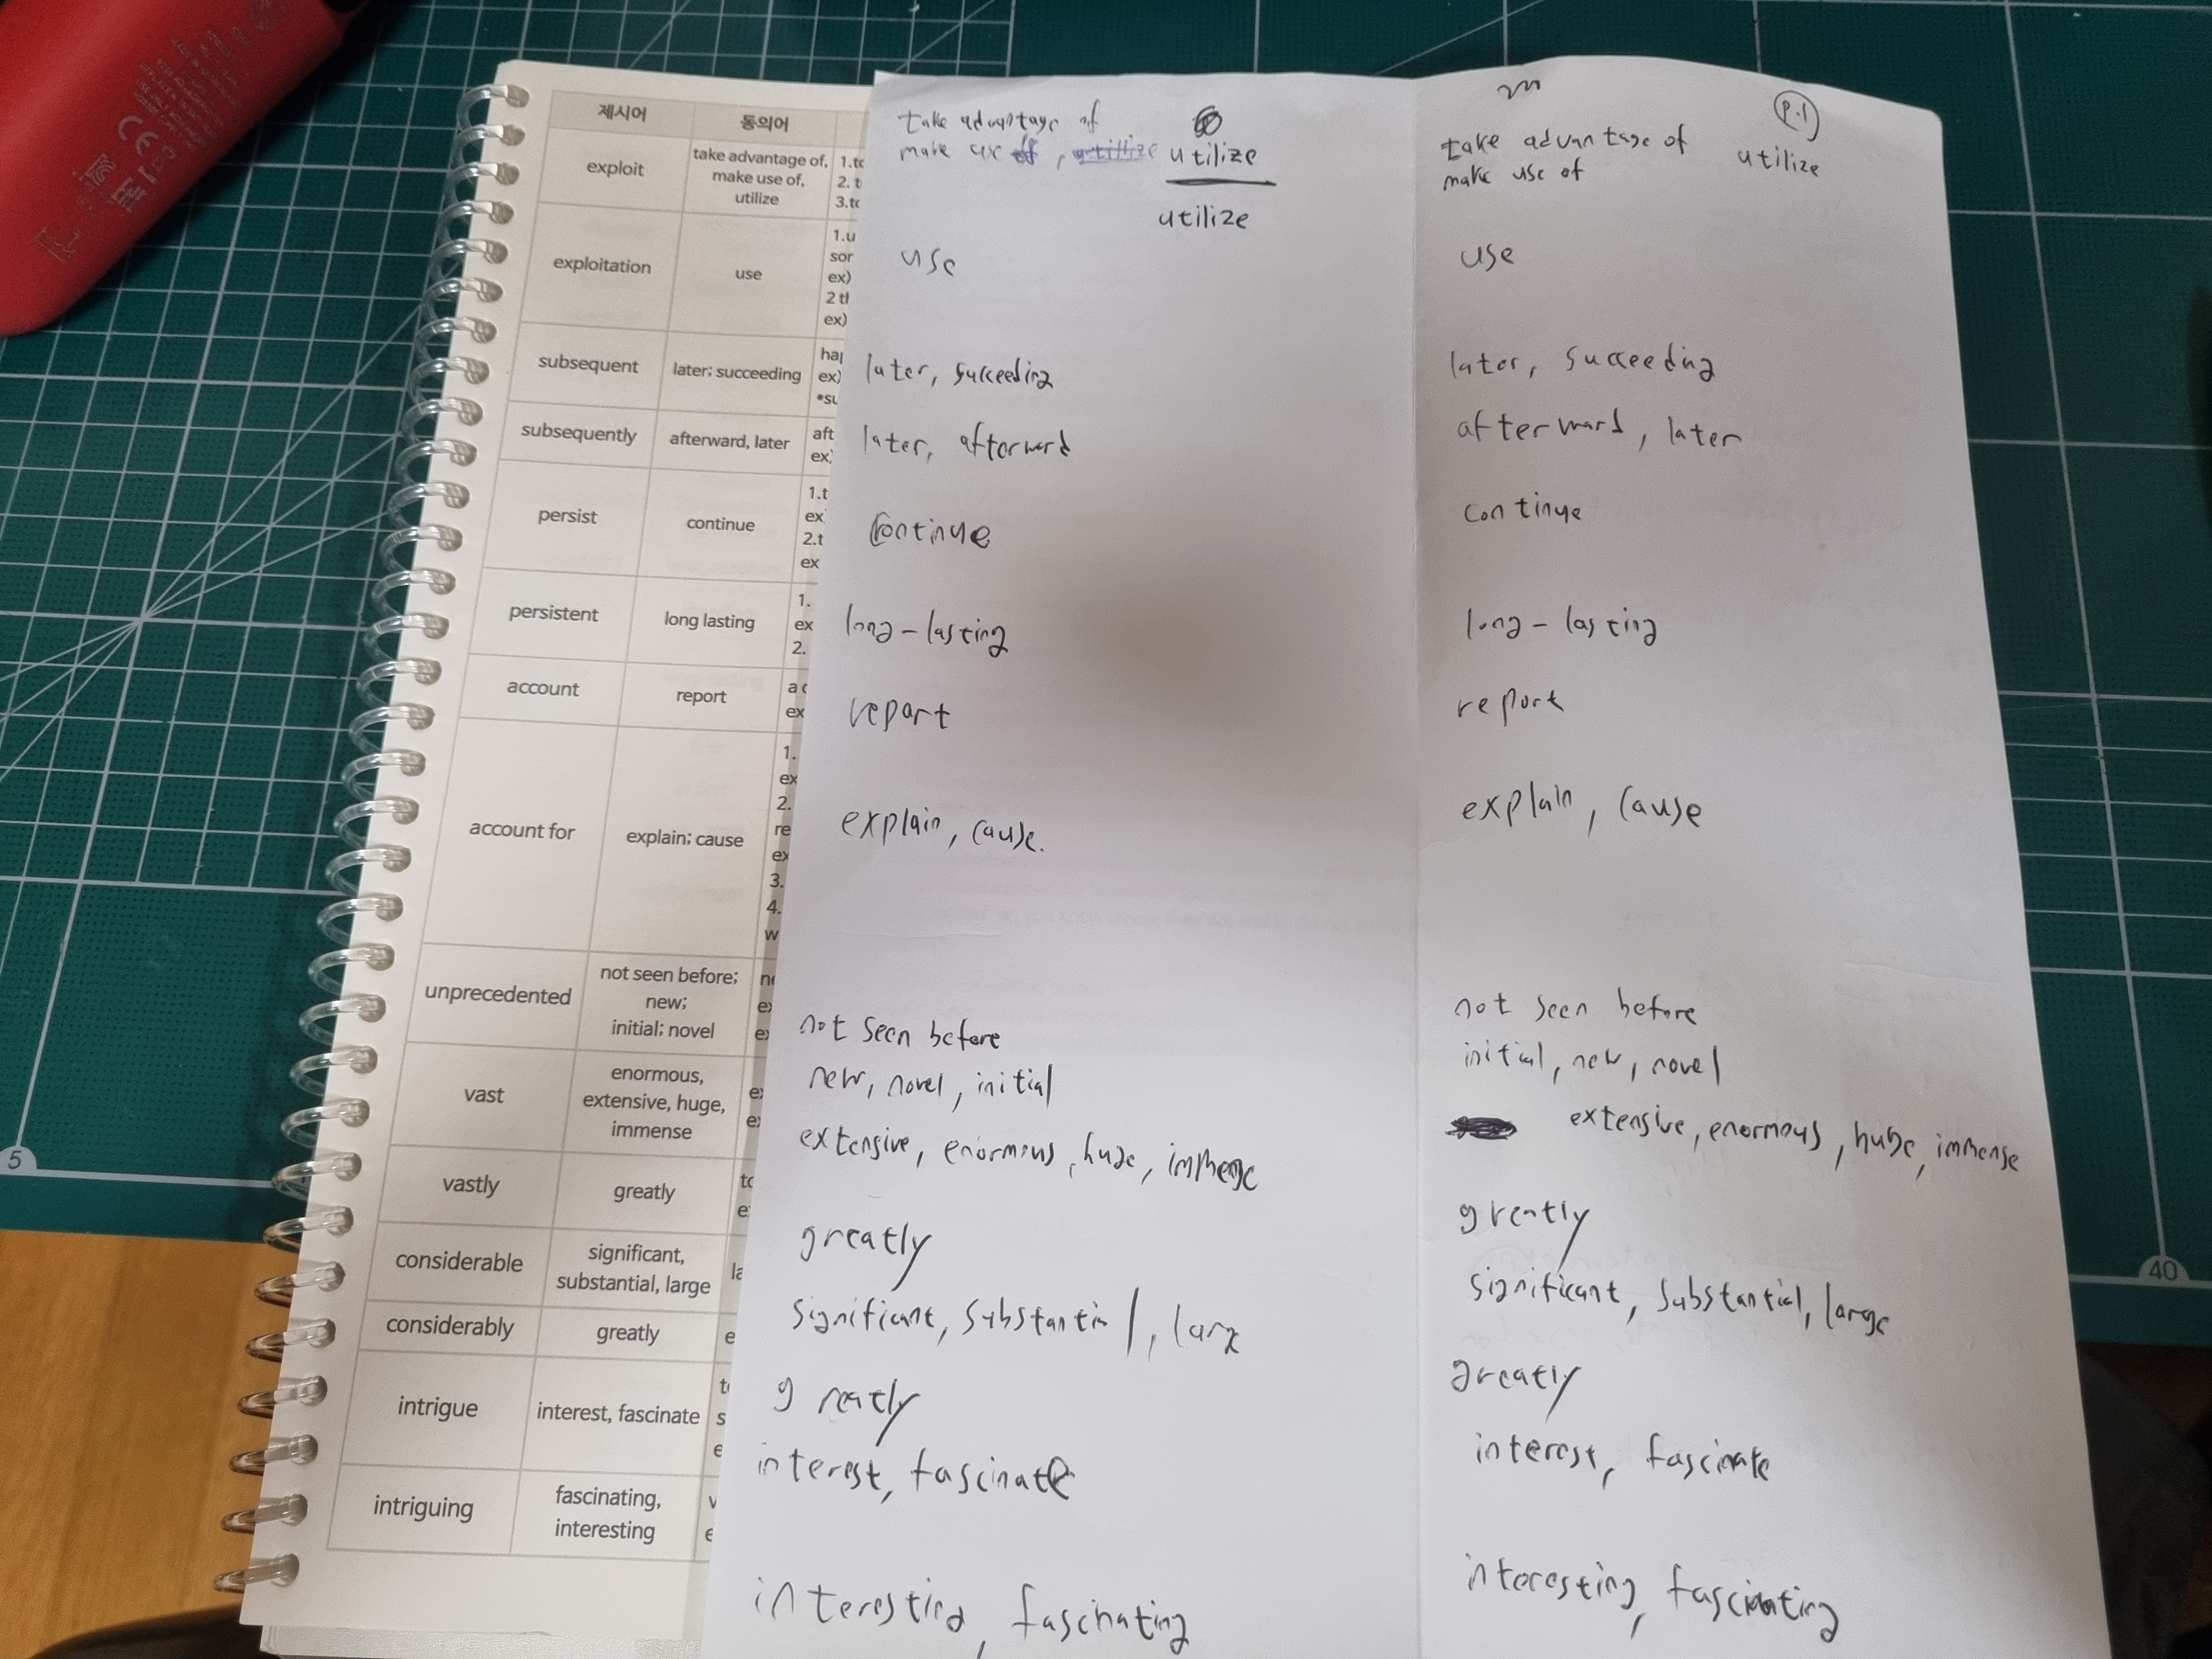 제시어 동의어
exploit take advantage of,
make use of,
utilize
1.to
2. t
3.to
exploitation use
1.u
sor
ex)
2 th
ex)
subsequent later; succeeding
hap
ex)
*su
subsequently afterward, later
aft
ex)
persist continue
1.t
ex
2.t
ex
persistent long lasting
1.
ex
2.
account report
a c
ex
account for explain; cause
1.
ex
2.
re
ex
3.
4.
w
unprecedented not seen before;
new;
initial; novel
vast enormous,
extensive, huge,
immense
vastly greatly
considerable significant,
substantial, large
considerably greatly
intrigue interest, fascinate
intriguing fascinating,
interesting
take advantage of
make use of, utillize utilize
utilize
use
later, succeeding
later, afterward
continue
long-lasting
report
explain, cause.
not seen before
new, novel, initial
extensive, enormous, huge, immense
greatly
significant, substantial, large
greatly
interest, fascinate
interesting, fascinating
P.1
take advantage of utilize
make use of
use
later, succeeding
afterward, later
continue
long-lasting
report
explain, cause
not seen before
initial, new, novel
extensive, enormous, huge, immense
greatly
significant, substantial, large
greatly
interest, fascinate
interesting, fascinating
5
40
CE